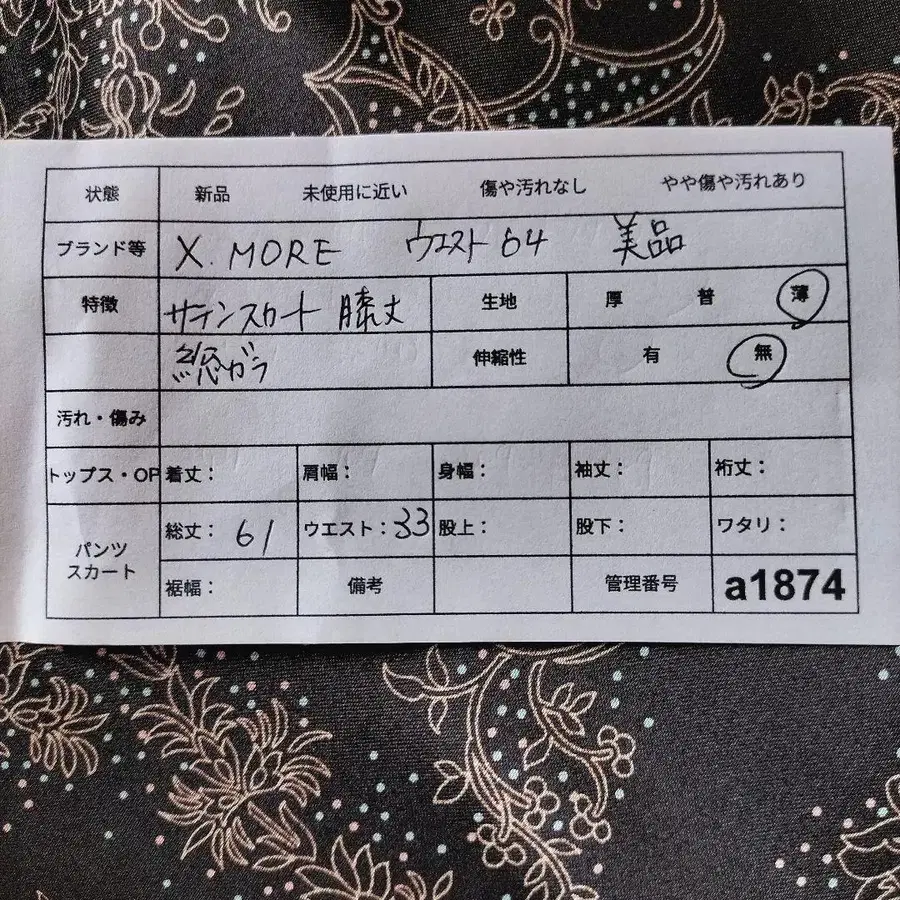 状態 新品 未使用に近い 傷や汚れなし やや傷や汚れあり
ブランド等 X.MORE ウエスト64 美品
特徴 サテンスカート 膝丈 生地 厚 普 薄
総ガラ 伸縮性 有 無
汚れ・傷み
トップス・OP 着丈： 肩幅： 身幅： 袖丈： 裄丈：
パンツ スカート 総丈：61 ウエスト：33 股上： 股下： ワタリ：
裾幅： 備考 管理番号 a1874